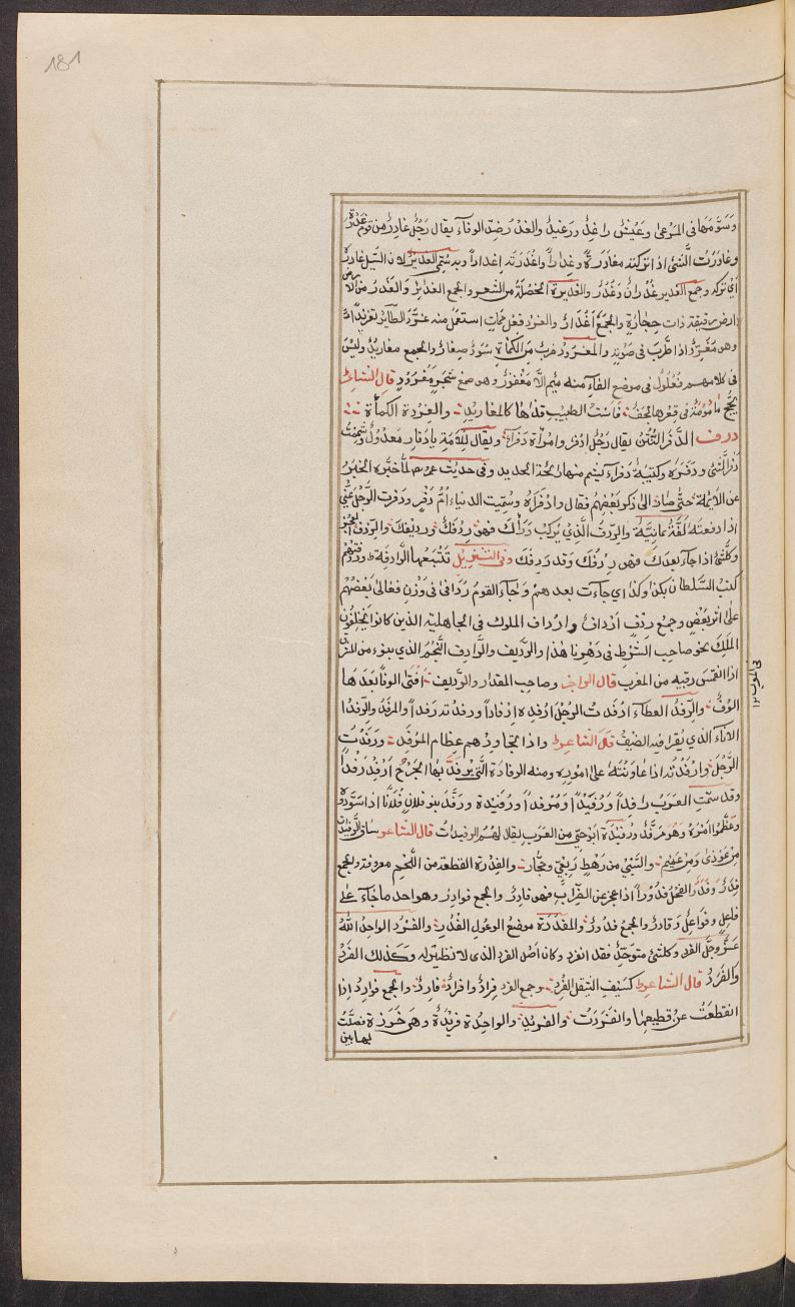 181
وَسَوَّمَها فى المَرْعى وعَيْش راغِدٌ ورَغِيدٌ والغَدْرُ ضِدّ الوفآء يقال رَجُلٌ غادِرٌ من قوم غَدَرَة
وغادَرْتُ الشَّئ اذا تركته مغادَرَةً وغِداراً واغْدَرْته إغداراً وبه سُمِّى الغَديرُ لان السَّيل غادَرَهُ
أىْ تركه وجمع الغدير غُدْرانٌ وغُدُرٌ والغَديرَةُ الخُصْلَةُ من الشعر والجمع الغدايرُ والغَدَرُ من الارض
ارض رقيقة ذات حِجارَةٍ والجَمْعُ أغْدارٌ والغرد فعل مُمات استعمل منه غرَّدَ الطايرُ تغريداً
وهو مُغَرِّدٌ اذا طَرّبَ فى صَوْته والمغرود ضربٌ من الكَمْاة سُودٌ صغارٌ والجمع مغاريدُ وليس
فى كلامهم فُعْلُولٌ فى موضع الفآء منه ميم الّا مُغْفورٌ وهو صمغ شجر ومُغْرُود قال الشاعر
يَحُجُّ مأمومةً فى قعرها لجفٌ فَاسْتُ الطبيب قَذاها كالمغاريدِ والغِرَدة الكمأة
درف الدَّفَرُ النَّتْنُ يقال رَجُلٌ ادْفَر وامرْأة دَفْرآءُ ويقال للاَمَةِ يا دَفارِ معدُولٌ وشَمِمْتُ
دَفَرَ الشَّئ ودَفْرَهُ وكتيبةٌ دَفْرآء يشم منها رائحة الحديد وفى حديث عمر لمّا خَبَّرَه الحَبْرُ
عن الائمة حتّى صار الى ذكر بَعْضِهُم فقال وادَفْراهُ وسُمِّيت الدنياء أمُّ دَفْرٍ ودفرت الرَّجُلَ عَنّى
اذا دفعته لُغَةٌ يمانِيّةٌ والرِّدْفُ الَّذِى يَركبُ وَرآكَ فهو رِدْفُكَ ورديفُكَ والرِّدْفُ العجُز
وكلّ شئ اذا جآء بعدك فهو ردْفُكَ وقد رَدِفَكَ وفى التنزيل تَتْبَعُها الرّادِفة وردِفَتْهُم
كتبُ السّلطان بكذا وكذا اى جآءت بعدهمْ وجآءَ القومُ رُدافى فى وَزْن فُعالى بَعْضُهُم
على اثر بَعْض وجمعُ ردْفٍ أرْدافٌ وارْداف الملوك فى الجاهلية الذين كانوا يخلفُون
المَلِكَ نحو صاحِب الشُّرَطِ فى دَهْرنا هٰذا والرَّديف والرَّادِف النَّجْمُ الذي ينوء من المشرق
اذا انغَمس رقيبه من المغرب قال الراجز وصاحِب المقدار والرّديف أفْنى الوفاً بَعدَها
الوُفُ والرِّفْدُ العطآء ارفدتُ الرَّجُلَ ارْفِده إرفاداً ورفدته رَفداً والمِرْفَدُ والرّفدُ
الانآءُ الذي يُقْرا فيه الضيفُ قال الشاعر واذا
الرَّجُلَ وارْفَدْتُه اذا عاوَنْتَهُ على امُوره ومنه الرفادَة
وقد سمّتِ العَرَبُ رافداً ورُفَيْداً ومُرفداً ورُفَيْدة ورَفَّدَ بنو فلانٍ فُلانًا اذا سَوَّدُوه
وعَظَّموا امْرَهُ وهو مُرَفَّدٌ ورُفَيْدَة أبو حىّ من العَرَب يقال لهُمُ الرفيدات قال الشاعر
والفِدْرَة القطعة من اللَّحْم معروفة والجمع
فِدَرٌ وفَدَرَ الفَحْلُ فُدُوراً اذا عجز عن الضِّراب فهو فادِرٌ والجمع فوادِرُ وهو احد ما جآء على
فاعِلٍ وفواعِلَ وفادرٌ والجمعُ فُدُورٌ والمفدَرَة موضعُ الوعُول الفُدُر والفَرْدُ الواحِدُ اللّٰهُ
عَزَّ وجَلَّ الفرد وكلّ شئ متوحّدٌ فقد انفرد وكان أصْل الفرد الذى لا نظير له وكذلك الفَرَدُ
والفَرُدُ قال الشاعر كسَيْفِ الصَّيْقلِ الفَردِ وجمع الفرد فِرادٌ وافرادٌ فارِدٌ والجمع فوارِدُ اذا
انقطعَتْ عنْ قطيعها وانفَرَدَت والفَريدُ والواحِدةُ فَريْدَةٌ وهى خَرَزة فصّلتْ
بها بين